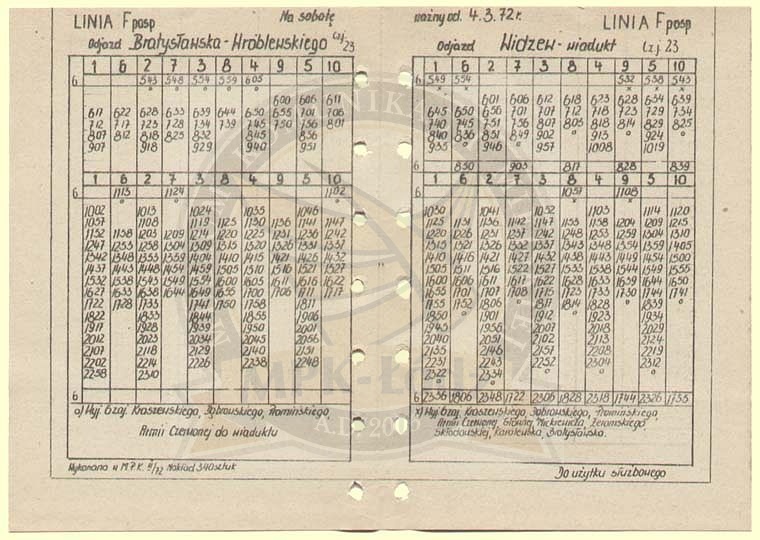 LINIA F posp Na sobotę ważny od. 4.3.72r. LINIA F posp
Odjazd Bratysławska-Wróblewskiego Czj. 23
1 6 2 7 3 8 4 9 5 10
6 543 548 554 559 605
600 606 611
617 622 628 633 639 644 650 655 701 706
712 717 723 728 734 739 745 750 756 801
807 812 818 823 832 845 856
907 918 929 940 951
1 6 2 7 3 8 4 9 5 10
6 1113 1124 1102
1002 1013 1024 1035 1046
1057 1108 1119 1125 1130 1136 1141 1147
1152 1158 1203 1209 1214 1220 1225 1231 1236 1242
1247 1253 1258 1304 1309 1315 1320 1326 1331 1337
1342 1348 1353 1359 1404 1410 1415 1421 1426 1432
1437 1443 1448 1454 1459 1505 1510 1516 1521 1527
1532 1538 1543 1549 1554 1600 1605 1611 1616 1622
1627 1633 1638 1644 1649 1655 1700 1706 1711 1717
1722 1728 1733 1741 1750 1758 1811
1822 1833 1844 1855 1906
1917 1928 1939 1950 2001
2012 2023 2034 2045 2056
2107 2118 2129 2140 2151
2202 2214 2226 2238 2248
2258 2310
6
o) Wyj. Czaj. Kraszewskiego, Dąbrowskiego, Przemińskiego,
Armii Czerwonej do wiaduktu
Wykonano w M.P.K. II/72 Nakład 340 sztuk
Odjazd Widzew-wiadukt Czj. 23
1 6 2 7 3 8 4 9 5 10
6 549 554 532 538 543
601 606 612 618 623 628 634 639
645 650 656 701 707 712 718 723 729 734
740 745 751 756 807 803 818 814 829 825
840 836 851 849 902 913 924
935 946 957 1008 1019
6 850 903 817 828 839
1 6 2 7 3 8 4 9 5 10
6 1057 1108
1030 1041 1052 1103 1114 1120
1125 1131 1136 1142 1147 1153 1158 1204 1209 1215
1220 1226 1231 1237 1242 1248 1253 1259 1304 1310
1315 1321 1326 1332 1337 1343 1348 1354 1359 1405
1410 1416 1421 1427 1432 1438 1443 1449 1454 1500
1505 1511 1516 1522 1527 1533 1538 1544 1549 1555
1600 1606 1611 1617 1622 1628 1633 1639 1644 1650
1655 1701 1707 1708 1715 1723 1733 1730 1744 1741
1755 1752 1806 1817 1814 1828 1839
1850 1901 1912 1923 1934
1945 1956 2007 2018 2029
2040 2051 2102 2113 2124
2135 2146 2157 2208 2219
2231 2243 2252 2304 2312
2322
6 2336 1806 2348 1722 2306 1828 2318 1744 2326 1755
x) Wyj. Czaj. Kraszewskiego, Dąbrowskiego,
Armii Czerwonej, Głównej, Mickiewicza, Żeromskiego
Skłodowskiej, Karolewska, Bratysławska.
Do użytku służbowego
MPK-Łódź
A.D. 2003